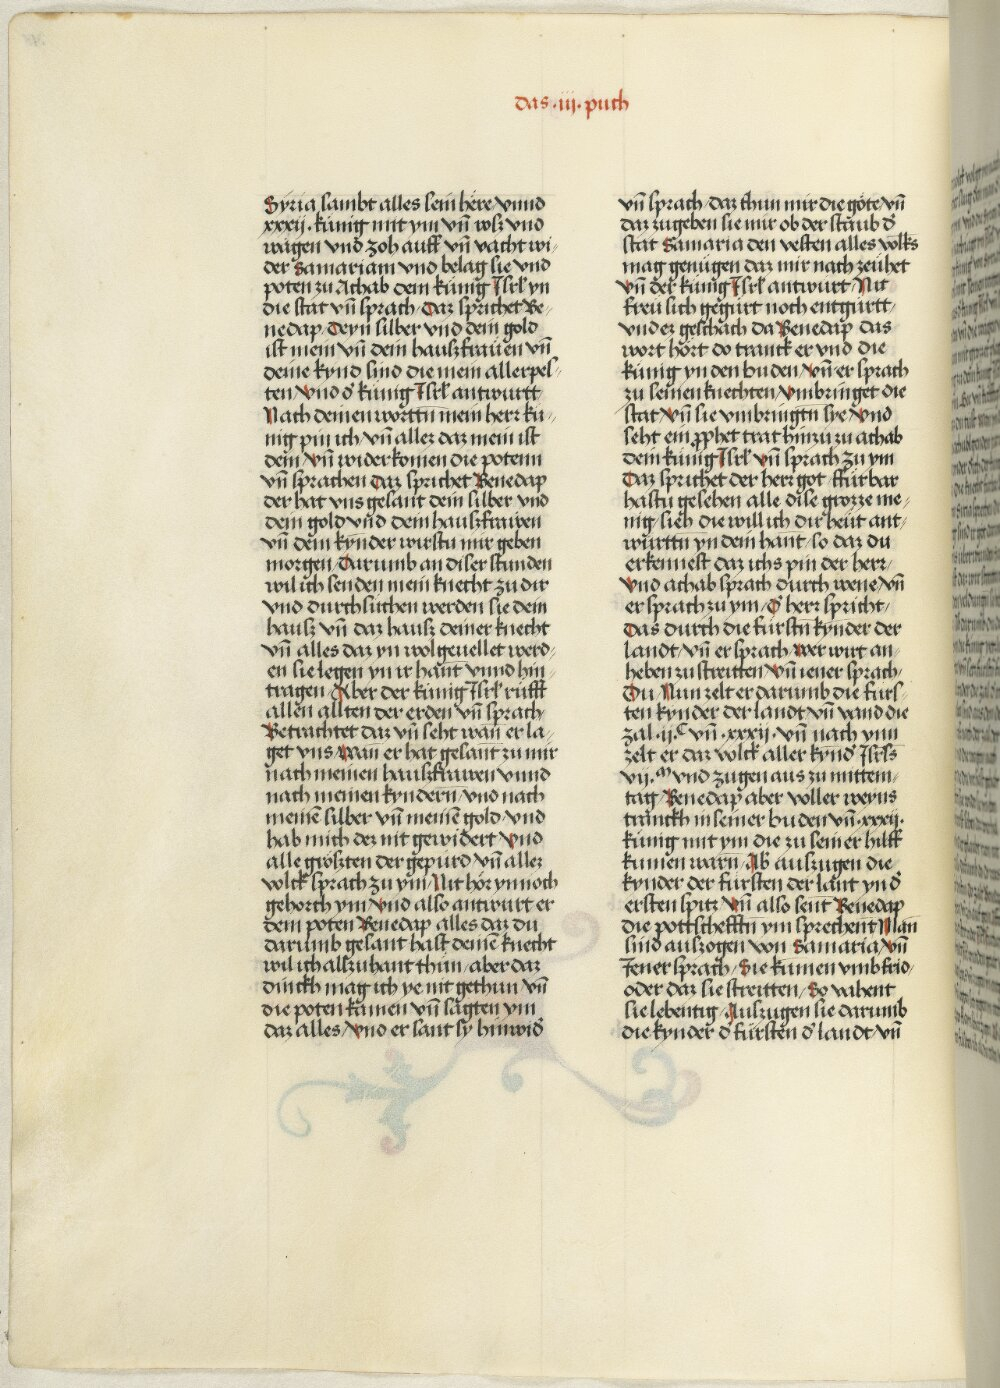 das ·iij· puch
Syria sambt alles sein here vnnd
xxxij. künig mit ym vn̄ rosz vnd
wägen vnd zoh auff vn̄ vacht wi-
der Samariam vnd belag sie vnd
poten zu Achab dem künig Isrl̄ yn
die stat vn̄ sprach Daz sprichet Be-
nedap Deyn silber vnd dein gold
ist mein vn̄ dein hauszfrauen vn̄
deine kynd sind die mein allerpes-
ten Vnd d' künig Isrl̄ antwurtt
Nach deinen worttn̄ mein herr kü-
nig pin ich vn̄ allez daz mein ist
dein Vn̄ widerkomen die potenn
vn̄ sprachen Daz sprichet Benedap
der hat vns gesant dein silber vnd
dein gold vnd dein hauszfrawen
vn̄ dein kynder wirstu mir geben
morgen Darumb an diser stunden
wil ich senden mein knecht zu dir
vnd durchsuchen werden sie dein
hausz vn̄ daz hausz deiner knecht
vn̄ alles daz yn wolgeuellet werd-
en sie legen yn ir hant vnnd hin
tragen Aber der künig Isrl̄ rufft
allen allten der erden vn̄ sprach
Betrachtet daz vn̄ seht wan̄ er la-
get vns wan er hat gesant zu mir
nach meinen hauszfrawen vnnd
nach meinen kyndern vnd nach
meinē silber vn̄ meinē gold vnd
hab mich dez nit gewidert Vnd
alle gröszten der gepurd vn̄ allez
volck sprach zu ym Nit hör yn noch
gehorch ym Vnd also antwurt er
dem poten Benedap alles daz du
darumb gesant hast deinē knecht
wil ich allzuhant thun aber daz
dinckh mag ich ye nit gethun vn̄
die poten kamen vn̄ sagten ym
daz alles Vnd er sant sy hinwid'
vn̄ sprach daz thun mir die göte vn̄
daz zugeben sie mir ob der staub d'
stat Samaria den vesten alles volks
mag genügen daz mir nach zeuhet
Vn̄ der künig Isrl̄ antwurt Nit
freu sich gegurt noch entgürtt
vnd ez geschach da Benedap das
wort hört do tranck er vnd die
künig yn den buden Vn̄ er sprach
zu seinen knechten Vmbringet die
stat Vn̄ sie vmbringtn̄ sye Vnd
seht ein prophet trat hinzu zu achab
dem künig Isrl̄ vn̄ sprach zu ym
Daz sprichet der herr got ffürbar
hastu gesehen alle dise grozze me-
nig sieh die will ich dir heut ant-
württn̄ yn dein hant so daz du
erkennest daz ichs pin der herr
Vnd achab sprach durch wene vn̄
er sprach zu ym D' herr spricht
Das durch die fürstn̄ kynder der
landt vn̄ er sprach wer wirt an-
heben zu streitten Vn̄ iener sprach
Du Nun zelt er darumb die fürs-
ten kynder der landt vn̄ vand die
zal .ij.c vn̄ .xxxij. vn̄ nach ynn
zelt er daz volck aller kynd' Isrl̄s
vij.m vnd zugen aus zu mittem-
tag Benedap aber voller weyns
tranckh in seiner buden vn̄ .xxxij.
künig mit ym die zu seiner hilff
kumen warn Als auszugen die
kynder der fürsten der lant yn d'
ersten spitz Vn̄ also sent Benedap
die pottschefftn̄ ym sprechent Man
sind auszogen von Samaria vn̄
Jener sprach Sie kumen vmb frid
oder daz sie streitten So vahent
sie lebentig Auszugen sie darumb
die kynder d' fürsten d' landt vn̄